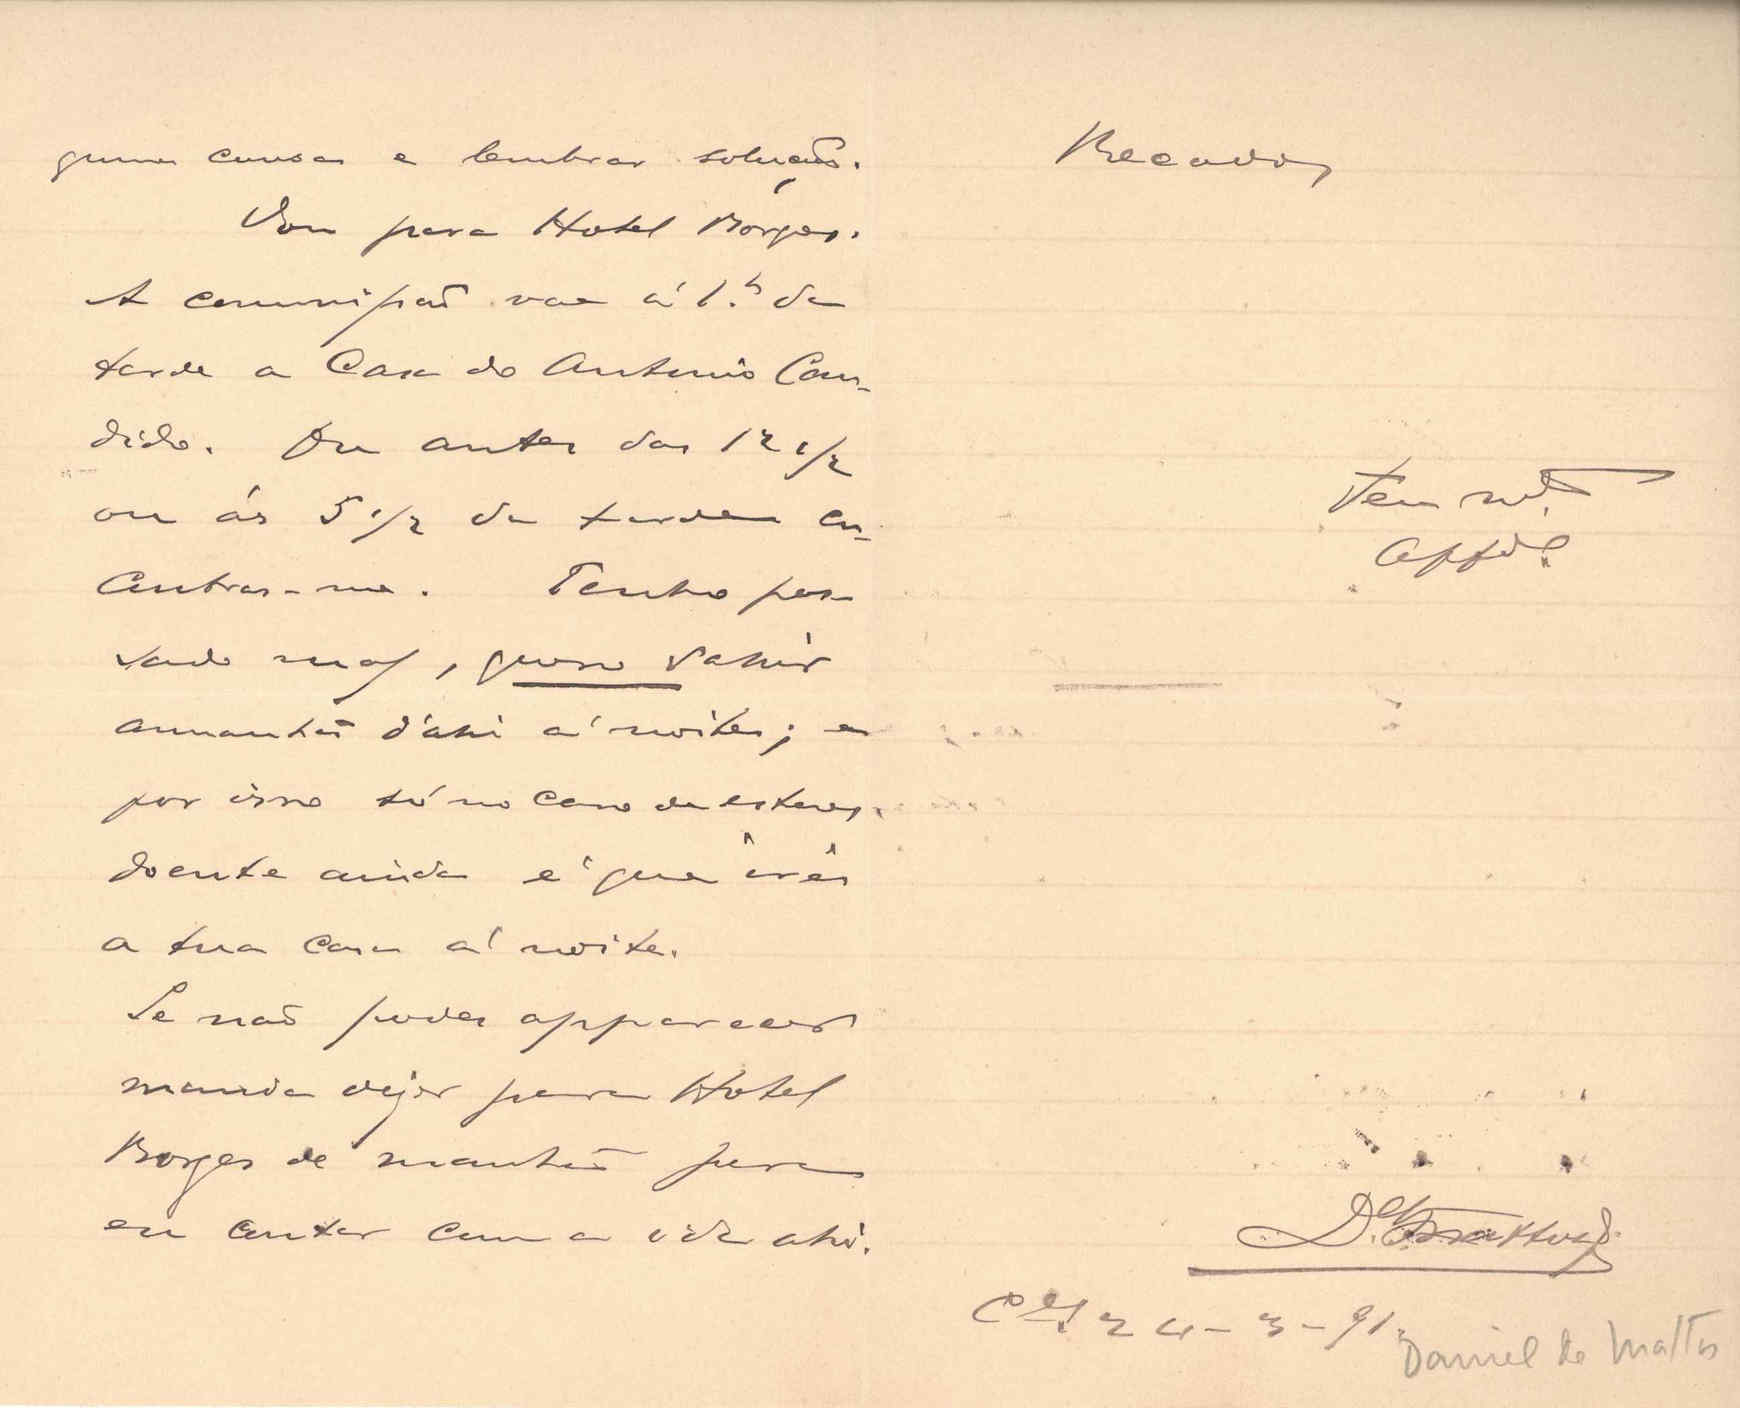 guma cousa e lembrar solução.
Vou para Hotel Borges.
A commissão vae á 1.h da
tarde a Casa do Antonio Can-
dido. Ou antes das 12 1/2
ou ás 5 1/2 da tarde en-
contras-me. Tenho pas-
sado mal, quero sahir
amanhã d'ahi á noite; e
por isso só no caso de estares
doente ainda é que irei
a tua casa á noite.
Se não podes apparecer
manda dizer para Hotel
Borges de manhã para
eu contar com a vida ahi.
Recados
Teu m.to
D. Mattos
C.a 24-3-91.
Daniel de Mattos